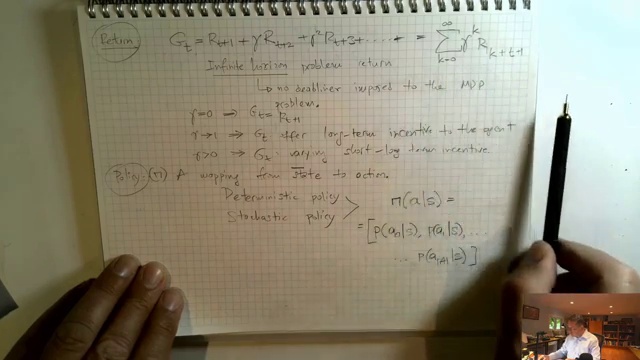 Return G_t = R_{t+1} + γR_{t+2} + γ²R_{t+3} + ..... + = Σ_{k=0}^{∞} γ^k R_{k+t+1}
Infinite horizon problem return
↳ no deadline imposed to the MDP
problem.
γ=0 → G_t = R_{t+1}
γ→1 → G_t offer long-term incentive to the agent
γ>0 → G_t: varying short-long term incentive
Policy (π) A mapping from state to action.
Deterministic policy
Stochastic policy
π(a|s) =
= [p(a_0|s), p(a_1|s), ...
... p(a_{|A|}|s)]